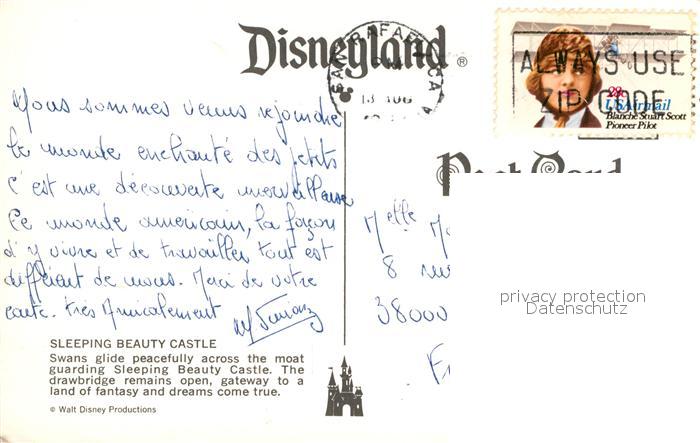 Disneyland ®
SAN RAFAEL CA
PM
13 AUG
ALWAYS USE
ZIP CODE
28c
USAirmail
Blanche Stuart Scott
Pioneer Pilot
Post Card
Nous sommes venus rejoindre
le monde enchanté des petits
C'est une découverte merveilleuse
Ce monde americain, la façon
d'y vivre et de travailler tout est
différent de nous. Merci de votre
carte. très Amicalement
Melle
8
38000
privacy protection
Datenschutz
SLEEPING BEAUTY CASTLE
Swans glide peacefully across the moat
guarding Sleeping Beauty Castle. The
drawbridge remains open, gateway to a
land of fantasy and dreams come true.
© Walt Disney Productions